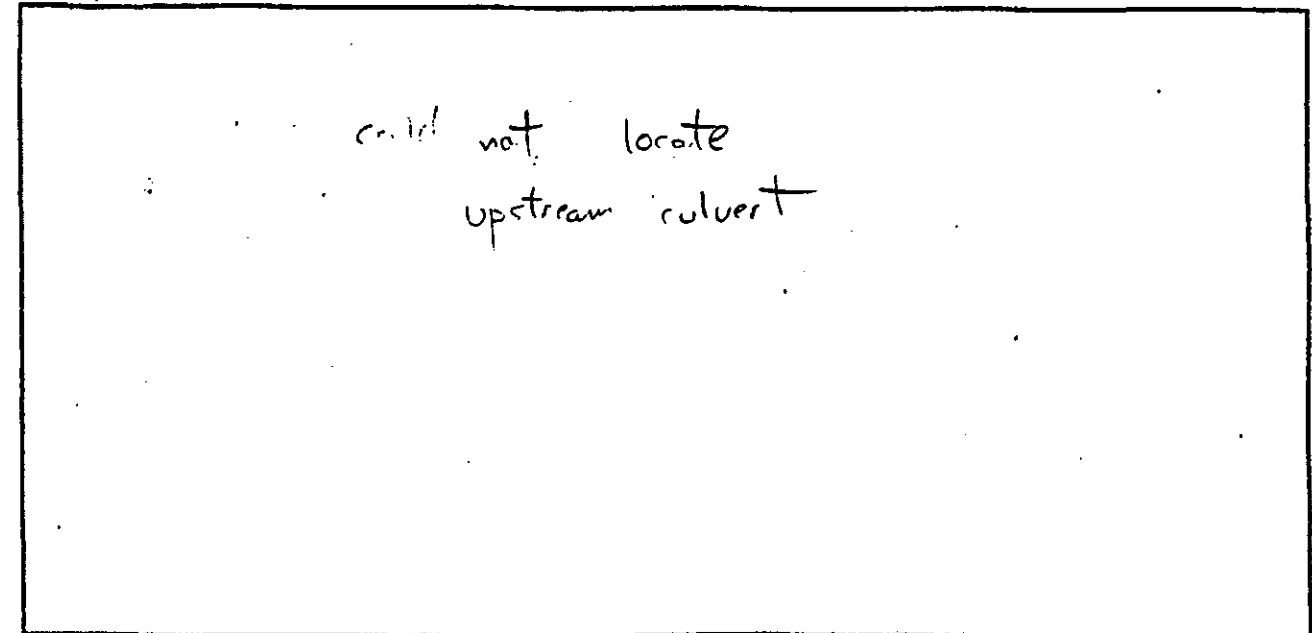 could not locate
upstream culvert